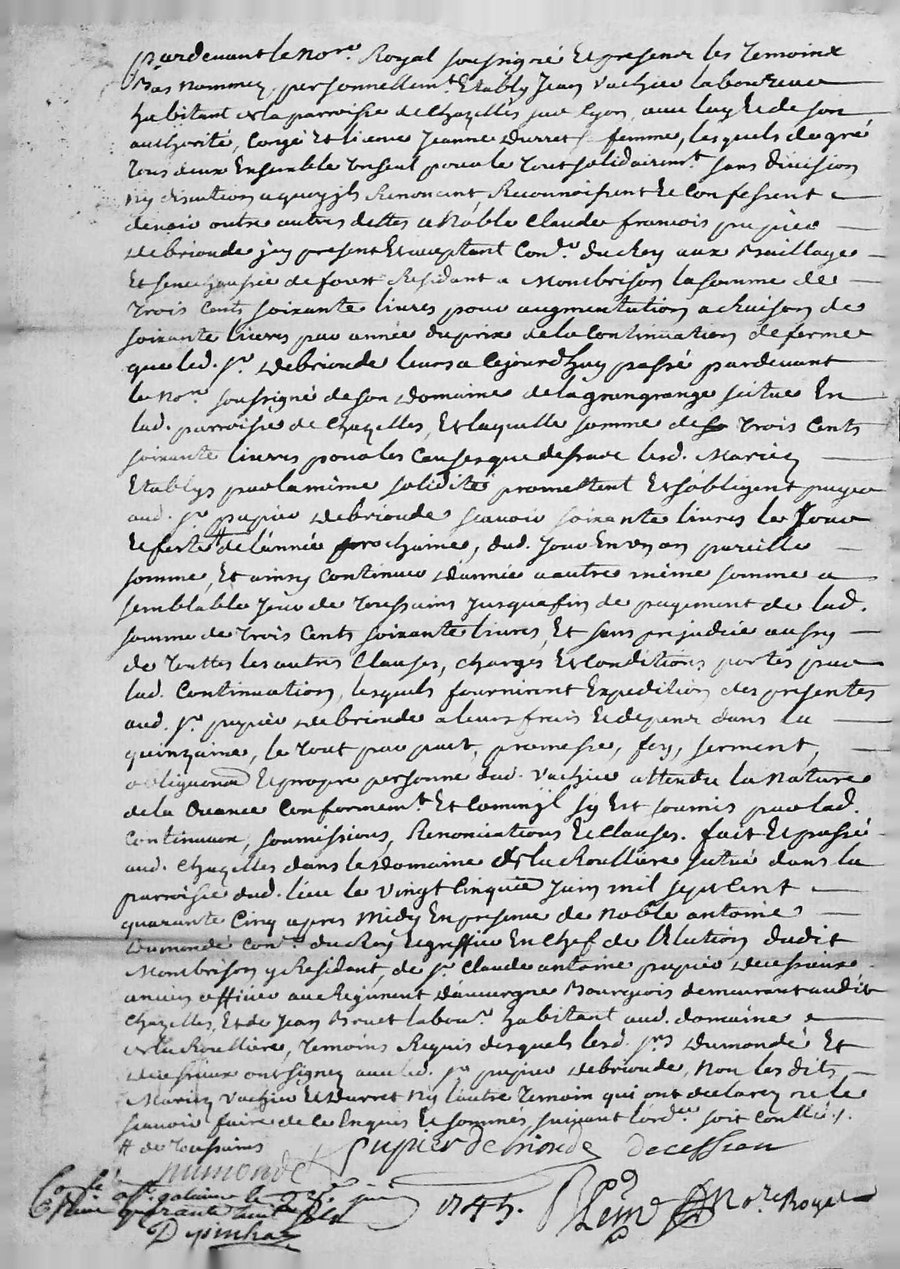 pardevant le Nore. Royal soussigné Et presens les Temoins
Bas Nommez, personnellemt. Etably Jean Vachier laboureur
habitant de la parroisse de Chazelles sur Lyon, avec luy Et de son
authorité, Congé Et licence Jeanne Durret sa femme, lesquels de gré
Tous deux Ensemble Un seul pour le Tout solidairemt. sans division
Ny discution a quoy ils Renoncent, Reconnoissent Et Confessent
devoir outre autres dettes a Noble Claude francois pupier
de brioude icy present Et acceptant Coner. du Roy aux Baillage
Et senechaussée de forest Residant a Montbrison la somme de
Trois Cents soixante livres pour augmentation a Raison de
soixante livres par année du prix de la Continuation de ferme
que led. sr. de brioude leurs a Cejourd'huy passé pardevant
le Nore. soussigné de son Domaine de la grangrange scitué En
lad. parroisse de Chazelles, Et laquelle somme de Trois Cents
soixante livres pour les Causes que dessus lesd. Mariez
Etablys par la même solidité promettent Et s'obligent payer
aud. sr. pupier de brioude scavoir soixante livres le Jour
Et feste # de l'année prochaine, dud. Jour En un an pareille
somme, Et ainsy Continuer d'année a autre même somme a
semblable Jour de Toussains Jusqu'a fin de payement de lad.
somme de Trois Cents soixante livres, Et sans prejudice aussy
de Touttes les autres Clauses, Charges Et Conditions portés par
lad. Continuation, lesquels fourniront Expedition des presentes
aud. sr. pupier de brioude a leurs frais Et depens dans la
quinzaine, le Tout par pact, promesse, foy, serment,
obligation Et propre personne dud. Vachier attendu la Nature
de la Créance Conformemt. Et Comm'il s'y Est soumis par lad.
Continuaon, soumissions, Renonciations Et Clauses. fait Et passé
aud. Chazelles dans le Domaine de la Roulliere scitué dans la
parroisse dud. lieu le Vingt Cinquie Juin mil sept Cent
quarante Cinq apres Midy En presence de Noble antoine
Dumonde Coner. du Roy Et greffier En Chef de l'Election dudit
Montbrison y Residant, de sr. Claude antoine pupier
ancien officier au Regiment d'auvergne Bourgeois demeurant audit
Chazelles, Et de Jean Bruet labour. habitant aud. domaine
de la Roulliere, Temoins Requis desquels lesd. srs Dumondé Et
ont signez avec led. sr pupier de brioude, Non les dits
Mariez Vachier Et Durret Ny l'autre Temoin qui ont declarez ne le
scavoir faire de ce Enquis Et sommés, suivant l'ordce. soit Conllé.
# de Toussains
Dumonde Pupier de brioude
Conllé a st. galmier le juin 1745.
quarante huit sols
Nore Royal